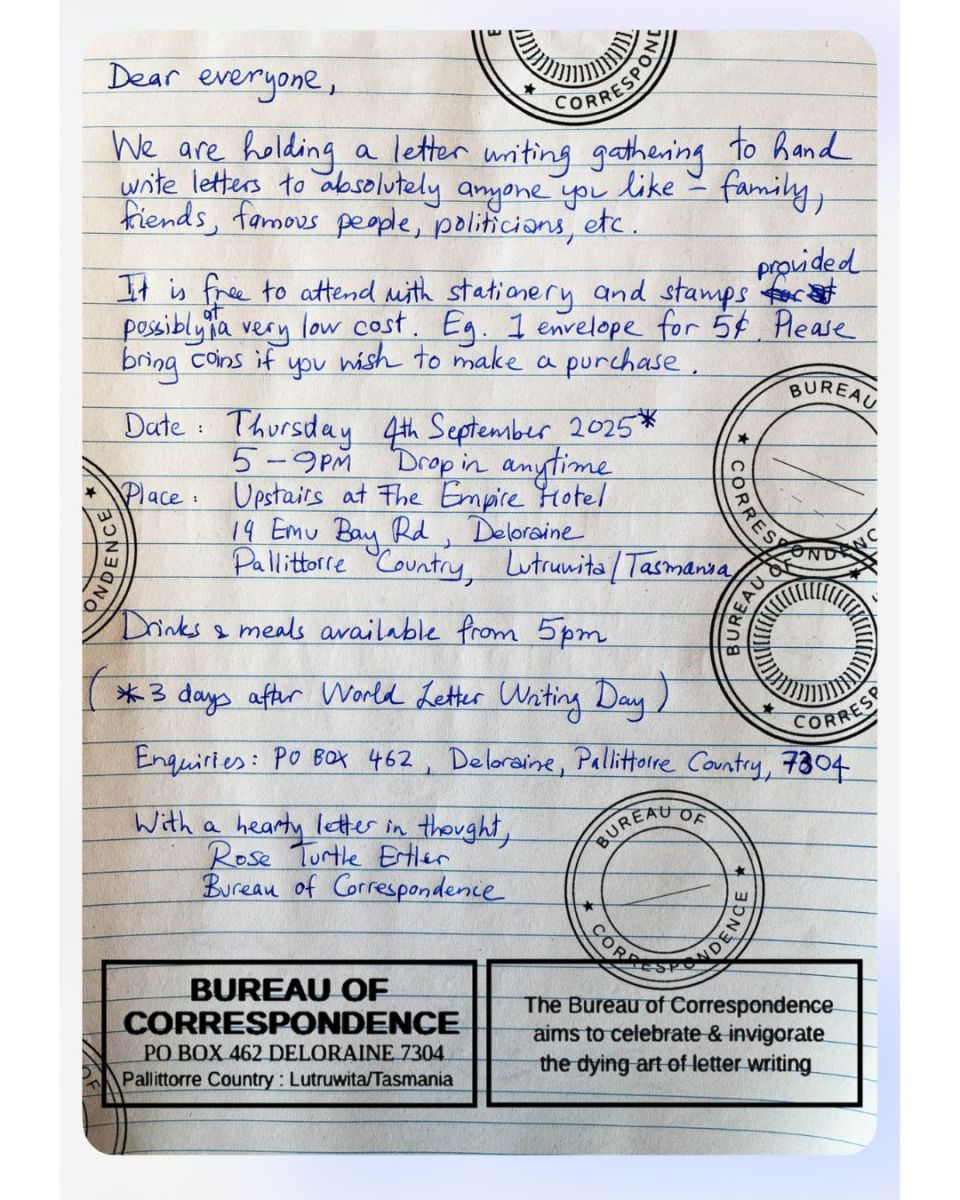 Dear everyone,
We are holding a letter writing gathering to hand
write letters to absolutely anyone you like – family,
friends, famous people, politicians, etc.
provided
It is free to attend with stationery and stamps
possibly at a very low cost. Eg. 1 envelope for 5¢. Please
bring coins if you wish to make a purchase.
Date : Thursday 4th September 2025*
5 – 9PM Drop in anytime
Place : Upstairs at The Empire Hotel
19 Emu Bay Rd, Deloraine
Pallittorre Country, Lutruwita/Tasmania
Drinks & meals available from 5pm
(*3 days after World Letter Writing Day)
Enquiries: PO BOX 462, Deloraine, Pallittorre Country, 7304
With a hearty letter in thought,
Rose Turtle Ertler
Bureau of Correspondence
CORRESPOND
BUREAU
CORRESPONDENC
ONDENCE
BUREAU OF
CORRES
BUREAU OF
CORRESPONDENCE
OF
BUREAU OF
CORRESPONDENCE
PO BOX 462 DELORAINE 7304
Pallittorre Country : Lutruwita/Tasmania
The Bureau of Correspondence
aims to celebrate & invigorate
the dying art of letter writing